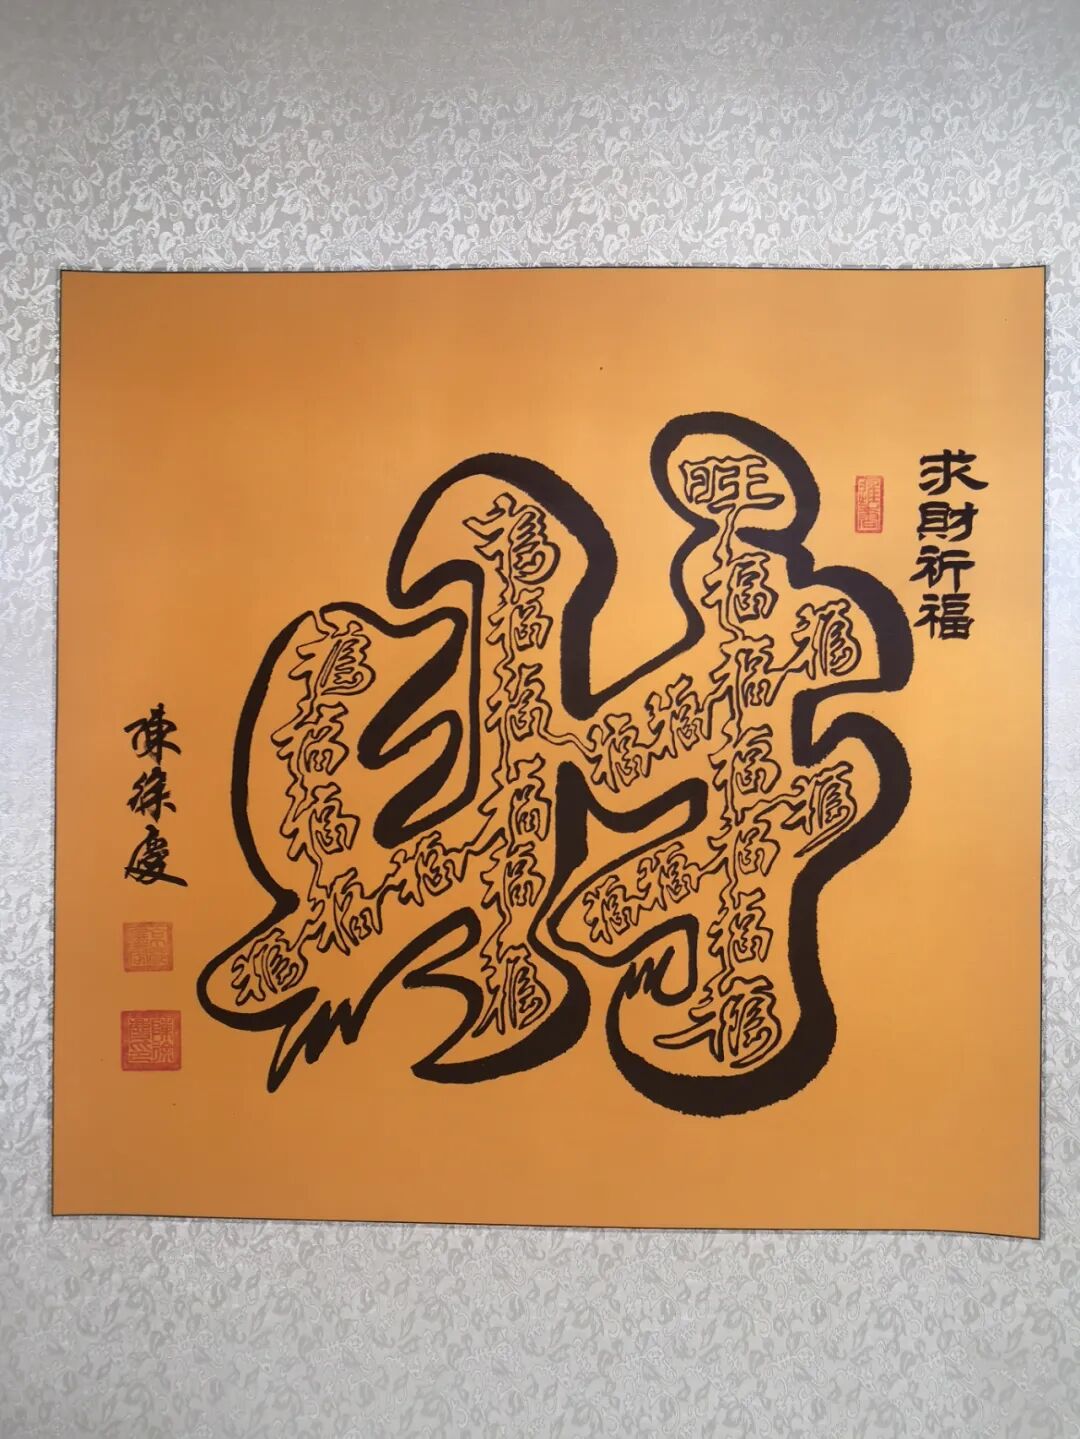 求財祈福
旺福福福福福福
福福
福福
福福
福福福福福福
福
福福福福福
陳徐慶